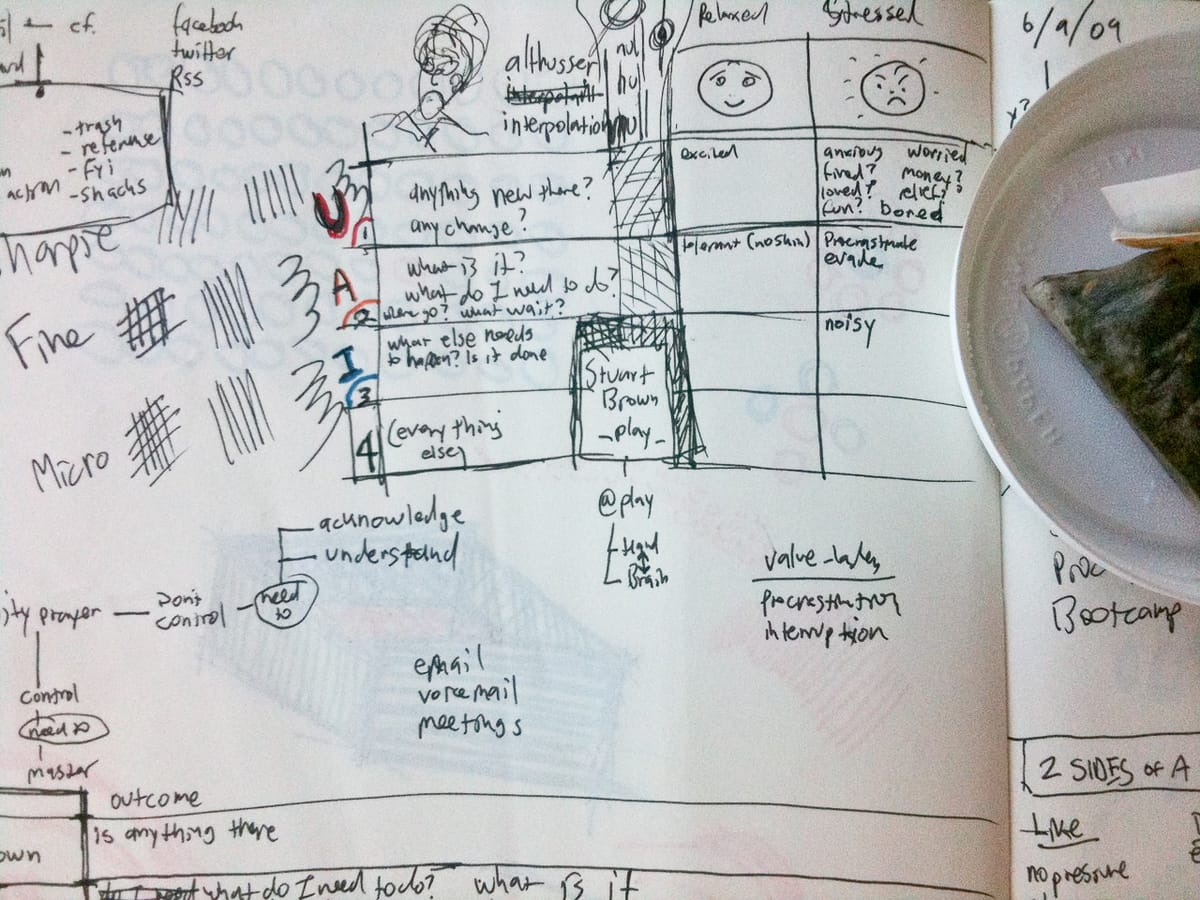 cf.
facebook
twitter
RSS
- trash
- reference
- Fyi
- snacks
action
Fine
Micro
althusser
interpolation
Relaxed
Stressed
U
1
anything new there?
any change?
excited
anxious worried
fired? money?
loved? relief?
fun? bored
A
2
what is it?
what do I need to do?
where go? what wait?
Procrastinate
evade
I
3
what else needs
to happen? Is it done
noisy
4
(everything
else)
Stuart
Brown
- play -
@play
Hand
Brain
acknowledge
understand
need
to
Don't
control
prayer
control
need to
master
value-laden
procrastination
interruption
email
voicemail
meetings
outcome
is anything there
what do I need to do? what is it
6/9/09
Bootcamp
2 SIDES OF A
Like
no pressure